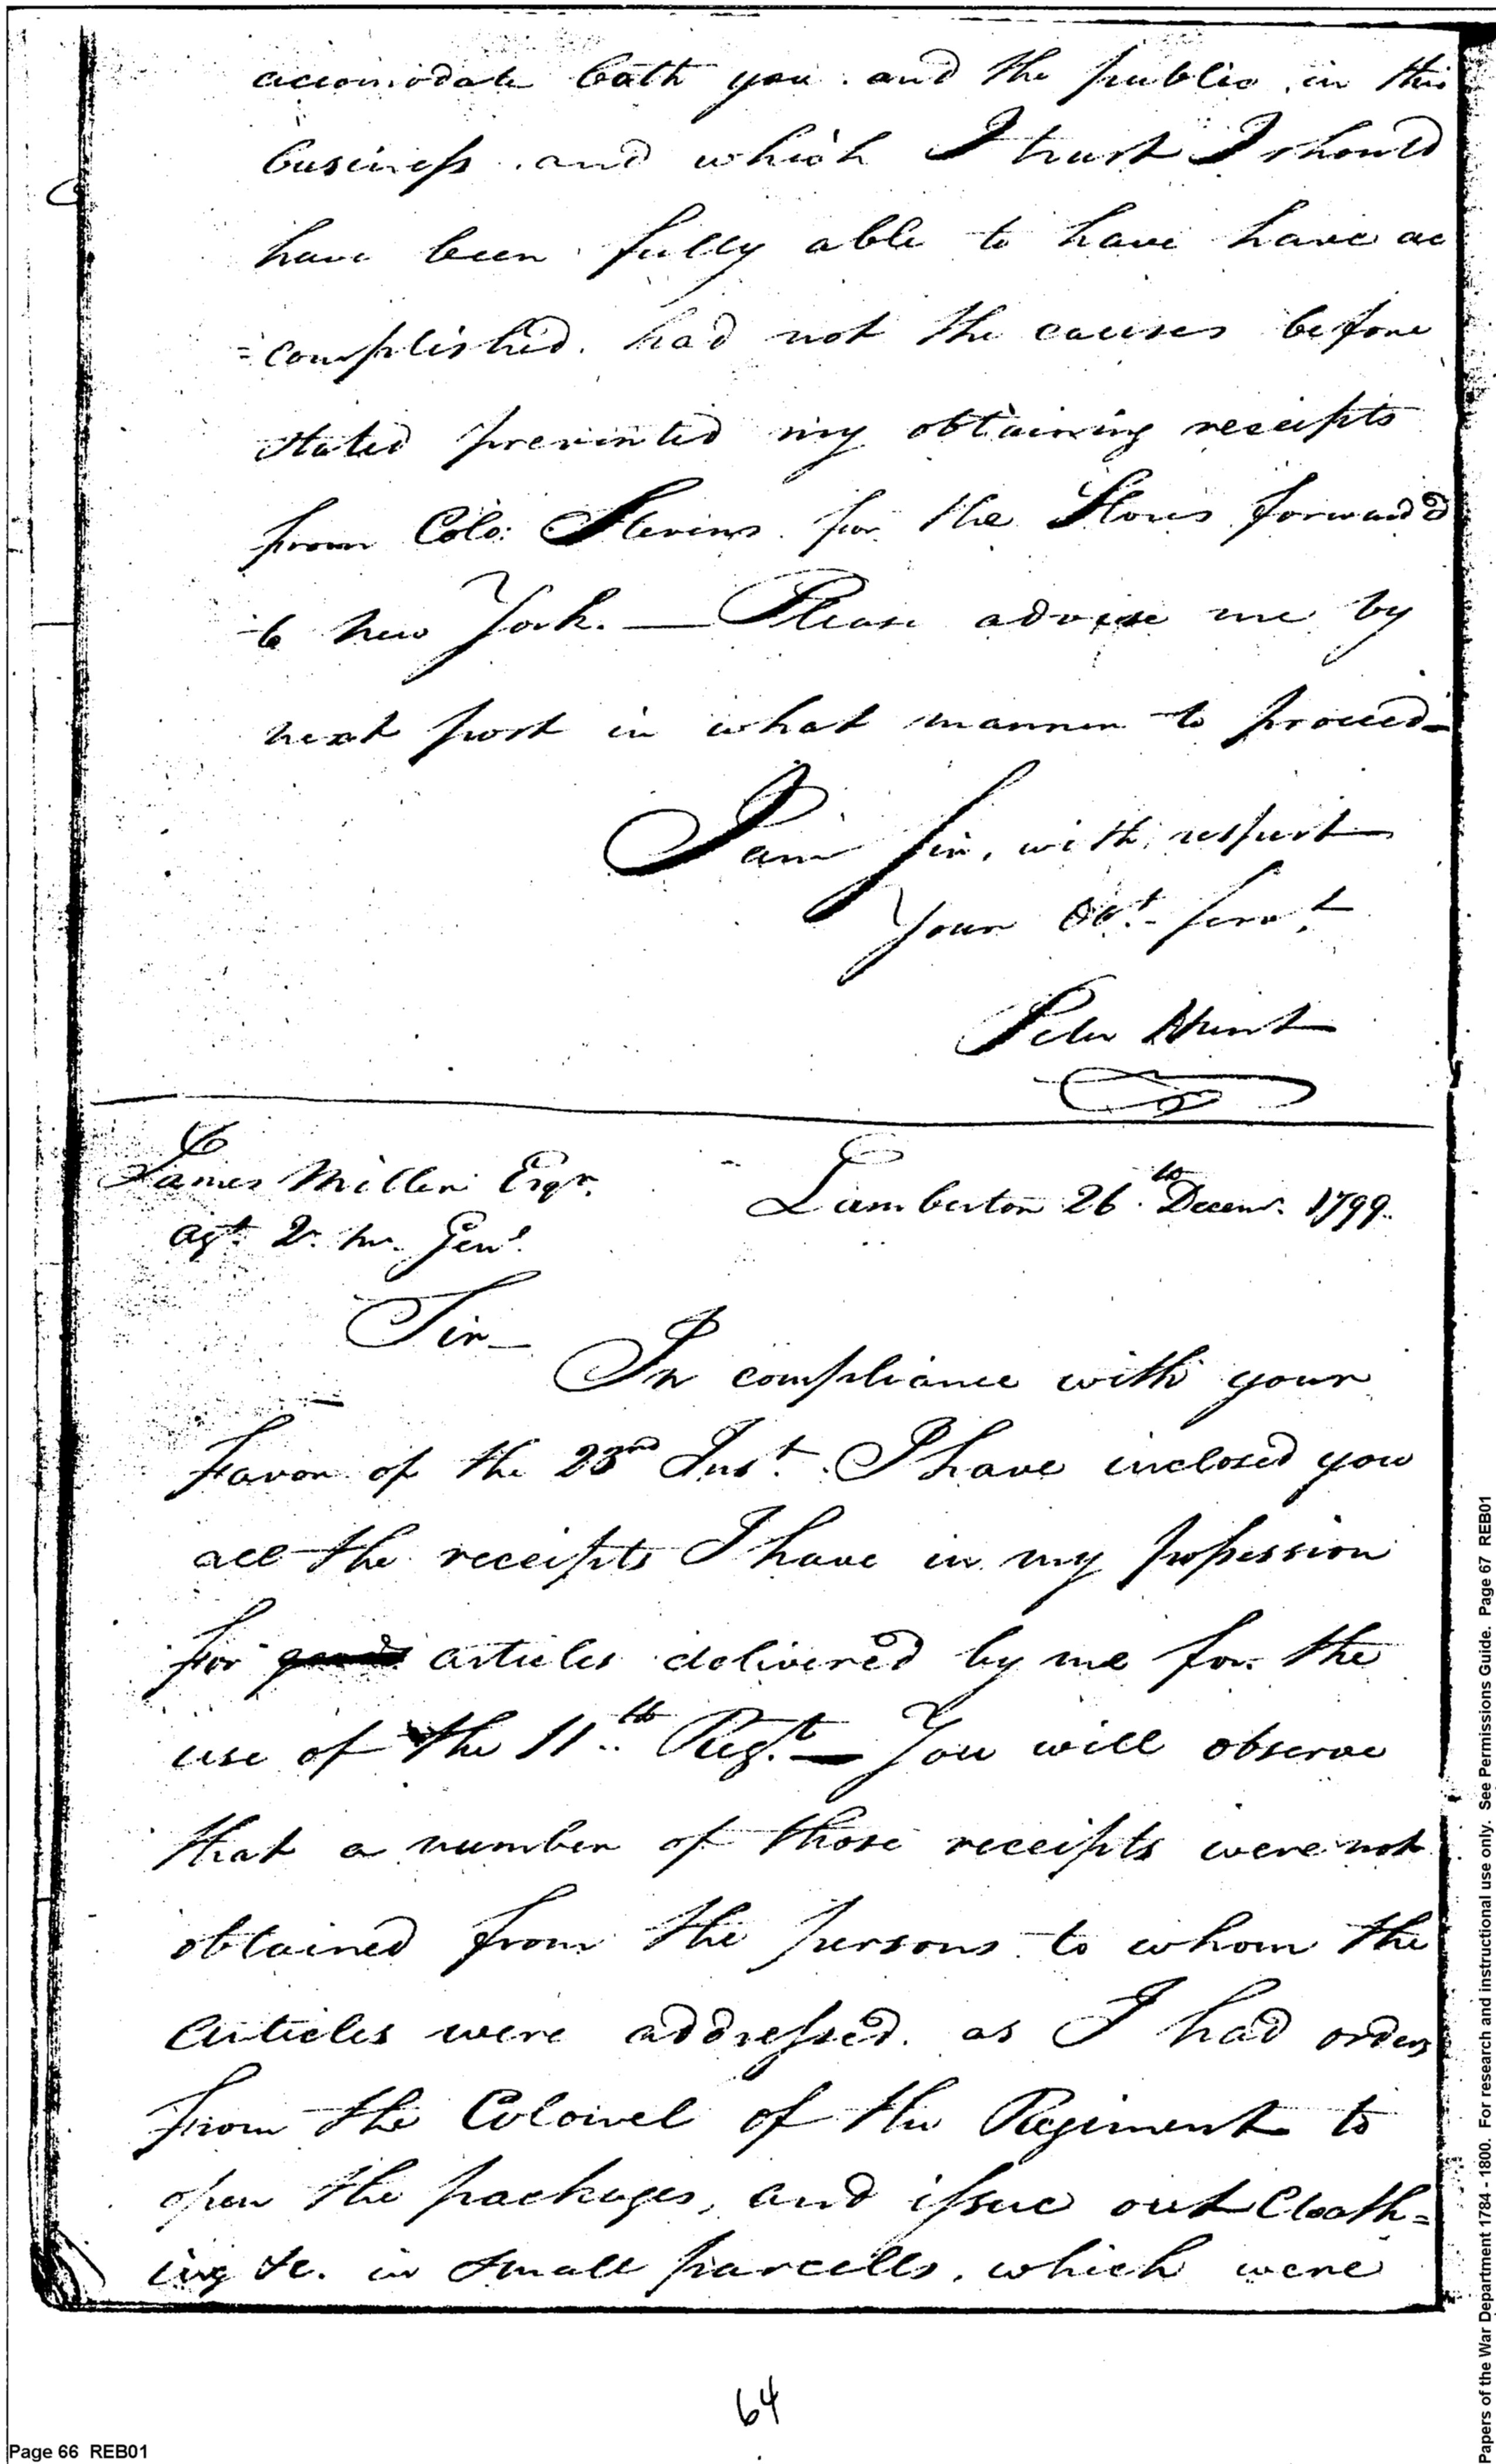 accomodate both you and the public in this
business and which I trust I should
have been fully able to have have ac
=complished. had not the causes before
stated prevented my obtaining receipts
from Colo: Stevens for the Stores forward'd
to New York. — Please advise me by
next post in what manner to proceed—
I am Sir, with respect
Your Obt. Servt.
Peter Hunt
James Miller Esqr.
Lamberton 26th Decemr. 1799.
agt. Qr. Mr. Genl.
Sir—
In compliance with your
Favor of the 23rd Inst. I have inclosed you
all the receipts I have in my possession
for goods articles delivered by me for the
use of the 11th Regt. — You will observe
that a number of those receipts were not
obtained from the persons to whom the
Articles were addressed. as I had orders
from the Colonel of the Regiment to
open the packages, and issue out Cloath=
ing &c. in small parcells, which were
64
Page 66 REB01
Papers of the War Department 1784 - 1800. For research and instructional use only. See Permissions Guide. Page 67 REB01